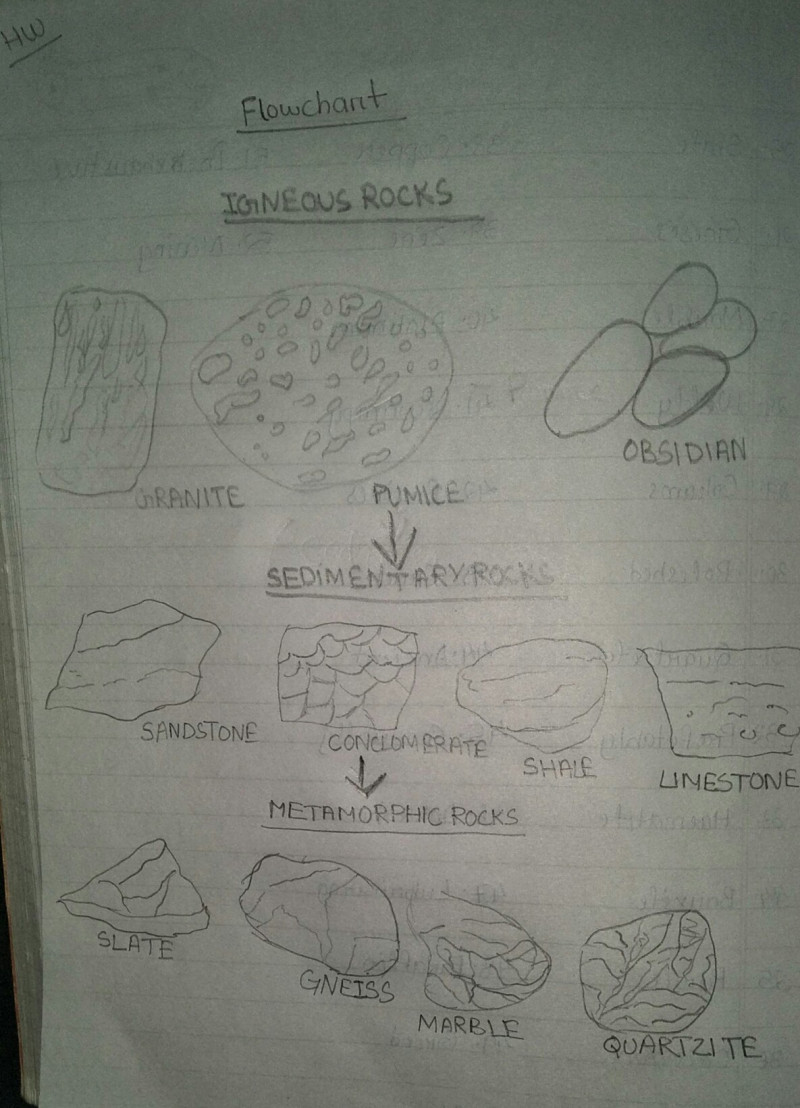 HW
Flowchant
IGNEOUS ROCKS
GRANITE
PUMICE
OBSIDIAN
SEDIMENTARY ROCKS
SANDSTONE
CONCLOMERATE
SHALE
LIMESTONE
METAMORPHIC ROCKS
SLATE
GNEISS
MARBLE
QUARTZITE